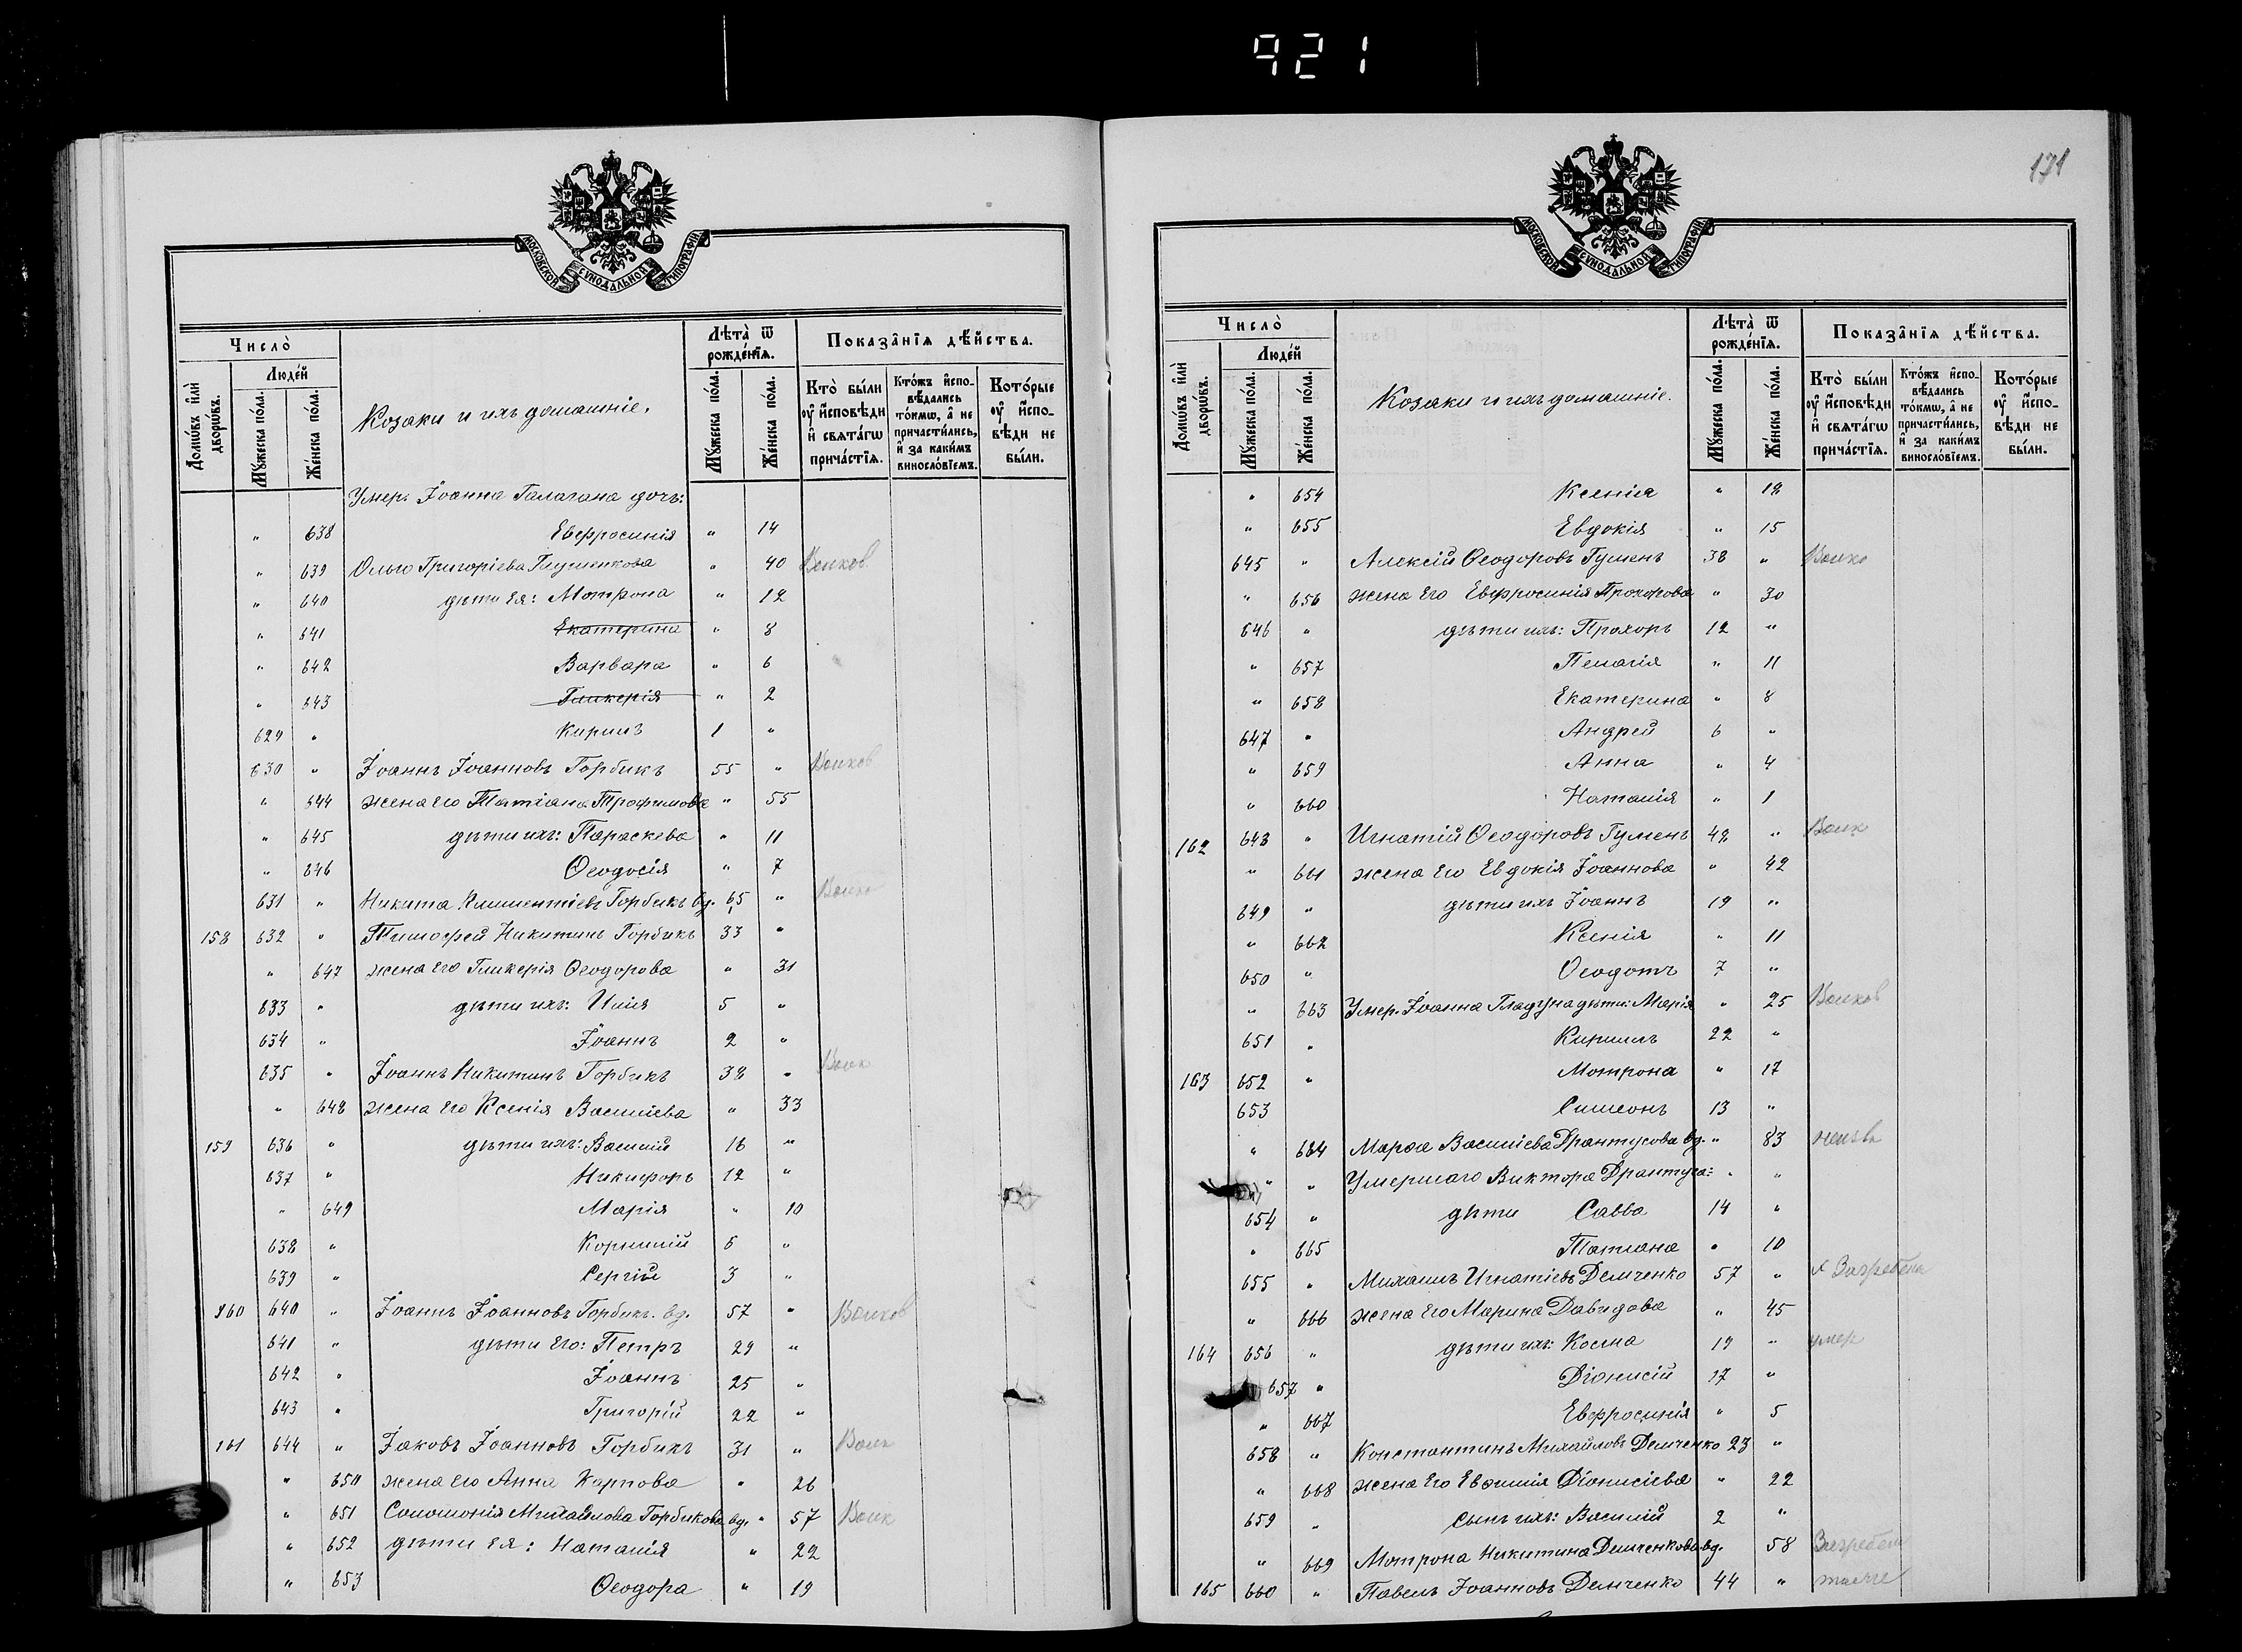 921
МОСКОВСКОЙ СѴНОДАЛЬНОЙ ТИПОГРАФІИ
Число̀
Люде́й
Домѡ́въ и҆лѝ дворѡ́въ.
Мꙋ́жеска по́ла.
Же́нска по́ла.
Козаки и ихъ домашніе.
Лѣта̀ ѿ рожде́нїѧ.
Мꙋ́жеска по́ла.
Же́нска по́ла.
Показа̂нїѧ дѣ́йства.
Кто̀ бы́ли ᲂу҆ и҆́сповѣди и҆ свѧта́гѡ прича́стїѧ.
Кто́жъ и҆спо-вѣ́дались то́кмѡ, а҆ не причасти́лись, и҆ за каки́мъ винослѡ́вїемъ.
Кото́рые ᲂу҆ и҆́спо-вѣди не бы́ли.
Умер. Іоанна Галагана дочь:
" 638 Евфросинія " 14
" 639 Ольга Григоріева Глушенкова " 40
" 640 дѣти ея: Мотрона " 12
" 641 Екатерина " 8
" 642 Варвара " 6
" 643 Гликерія " 2
629 " Кирилъ 1 "
630 " Іоаннъ Іоанновъ Горбикъ 55 " Волков
" 644 жена его Татіана Трофимова " 55
" 645 дѣти ихъ: Параскева " 11
" 646 Ѳеодосія " 7
631 " Никита Климентіевъ Горбикъ вд. 65 "
158 632 " Тимофей Никитинъ Горбикъ 33 "
" 647 жена его Гликерія Ѳеодорова " 31
633 " дѣти ихъ: Илія 5 "
634 " Іоаннъ 2 "
635 " Іоаннъ Никитинъ Горбикъ 38 "
" 648 жена его Ксенія Василіева " 33
159 636 " дѣти ихъ: Василій 16 "
637 " Никифоръ 12 "
" 649 Марія " 10
638 " Корнилій 6 "
639 " Сергій 3 "
160 640 " Іоаннъ Іоанновъ Горбикъ. вд. 57 " Волков
641 " дѣти его: Петръ 29 "
642 " Іоаннъ 25 "
643 " Григорій 22 "
161 644 " Іаковъ Іоанновъ Горбикъ 31 "
" 650 жена его Анна Карпова " 26
" 651 Соломонія Михайлова Горбикова вд. " 57 Волк
" 652 дѣти ея: Наталія " 22
" 653 Ѳеодора " 19
171
МОСКОВСКОЙ СѴНОДАЛЬНОЙ ТИПОГРАФІИ
Число̀
Люде́й
Домѡ́въ и҆лѝ дворѡ́въ.
Мꙋ́жеска по́ла.
Же́нска по́ла.
Козаки и ихъ домашніе.
Лѣта̀ ѿ рожде́нїѧ.
Мꙋ́жеска по́ла.
Же́нска по́ла.
Показа̂нїѧ дѣ́йства.
Кто̀ бы́ли ᲂу҆ и҆́сповѣди и҆ свѧта́гѡ прича́стїѧ.
Кто́жъ и҆спо-вѣ́дались то́кмѡ, а҆ не причасти́лись, и҆ за каки́мъ винослѡ́вїемъ.
Кото́рые ᲂу҆ и҆́спо-вѣди не бы́ли.
" 654 Ксенія " 18
" 655 Евдокія " 15
645 " Алексій Ѳеодоровъ Гуменъ 38 "
" 656 жена его Евфросинія Прохорова " 30
646 " дѣти ихъ: Прохоръ 12 "
" 657 Пелагія " 11
" 658 Екатерина " 8
647 " Андрей 6 "
" 659 Анна " 4
" 660 Наталія " 1
162 648 " Игнатій Ѳеодоровъ Гуменъ 48 " Волк
" 661 жена его Евдокія Іоаннова " 42
649 " дѣти ихъ Іоаннъ 19 "
" 662 Ксенія " 11
650 " Ѳеодотъ 7 "
" 663 Умер. Іоанна Гладуна дѣти: Марія " 25 Волков
651 " Кирилъ 22 "
163 652 " Мотрона " 17
653 Симеонъ 13 "
" 664 Марѳа Василіева Драптусова вд. " 83
" " Умершаго Виктора Драптуса: " "
654 " дѣти Савва 14 "
" 665 Татіана " 10
655 " Михаилъ Игнатіевъ Демченко 57 "
" 666 жена его Марина Давидова " 45
164 656 " дѣти ихъ: Косма 19 " умер
657 " Діонисій 17 "
" 667 Евфросинія " 5
658 " Константинъ Михайловъ Демченко 23 "
" 668 жена его Евфимія Діонисіева " 22
659 " сынъ ихъ: Василій 2 "
" 669 Мотрона Никитина Демченкова вд. 58
165 660 " Павелъ Іоанновъ Демченко 44 "